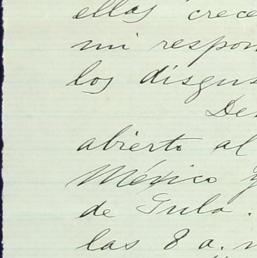 ellas crece
mi respon
los disgus
De
abierto al
México y
de Tula.
las 8 a. m